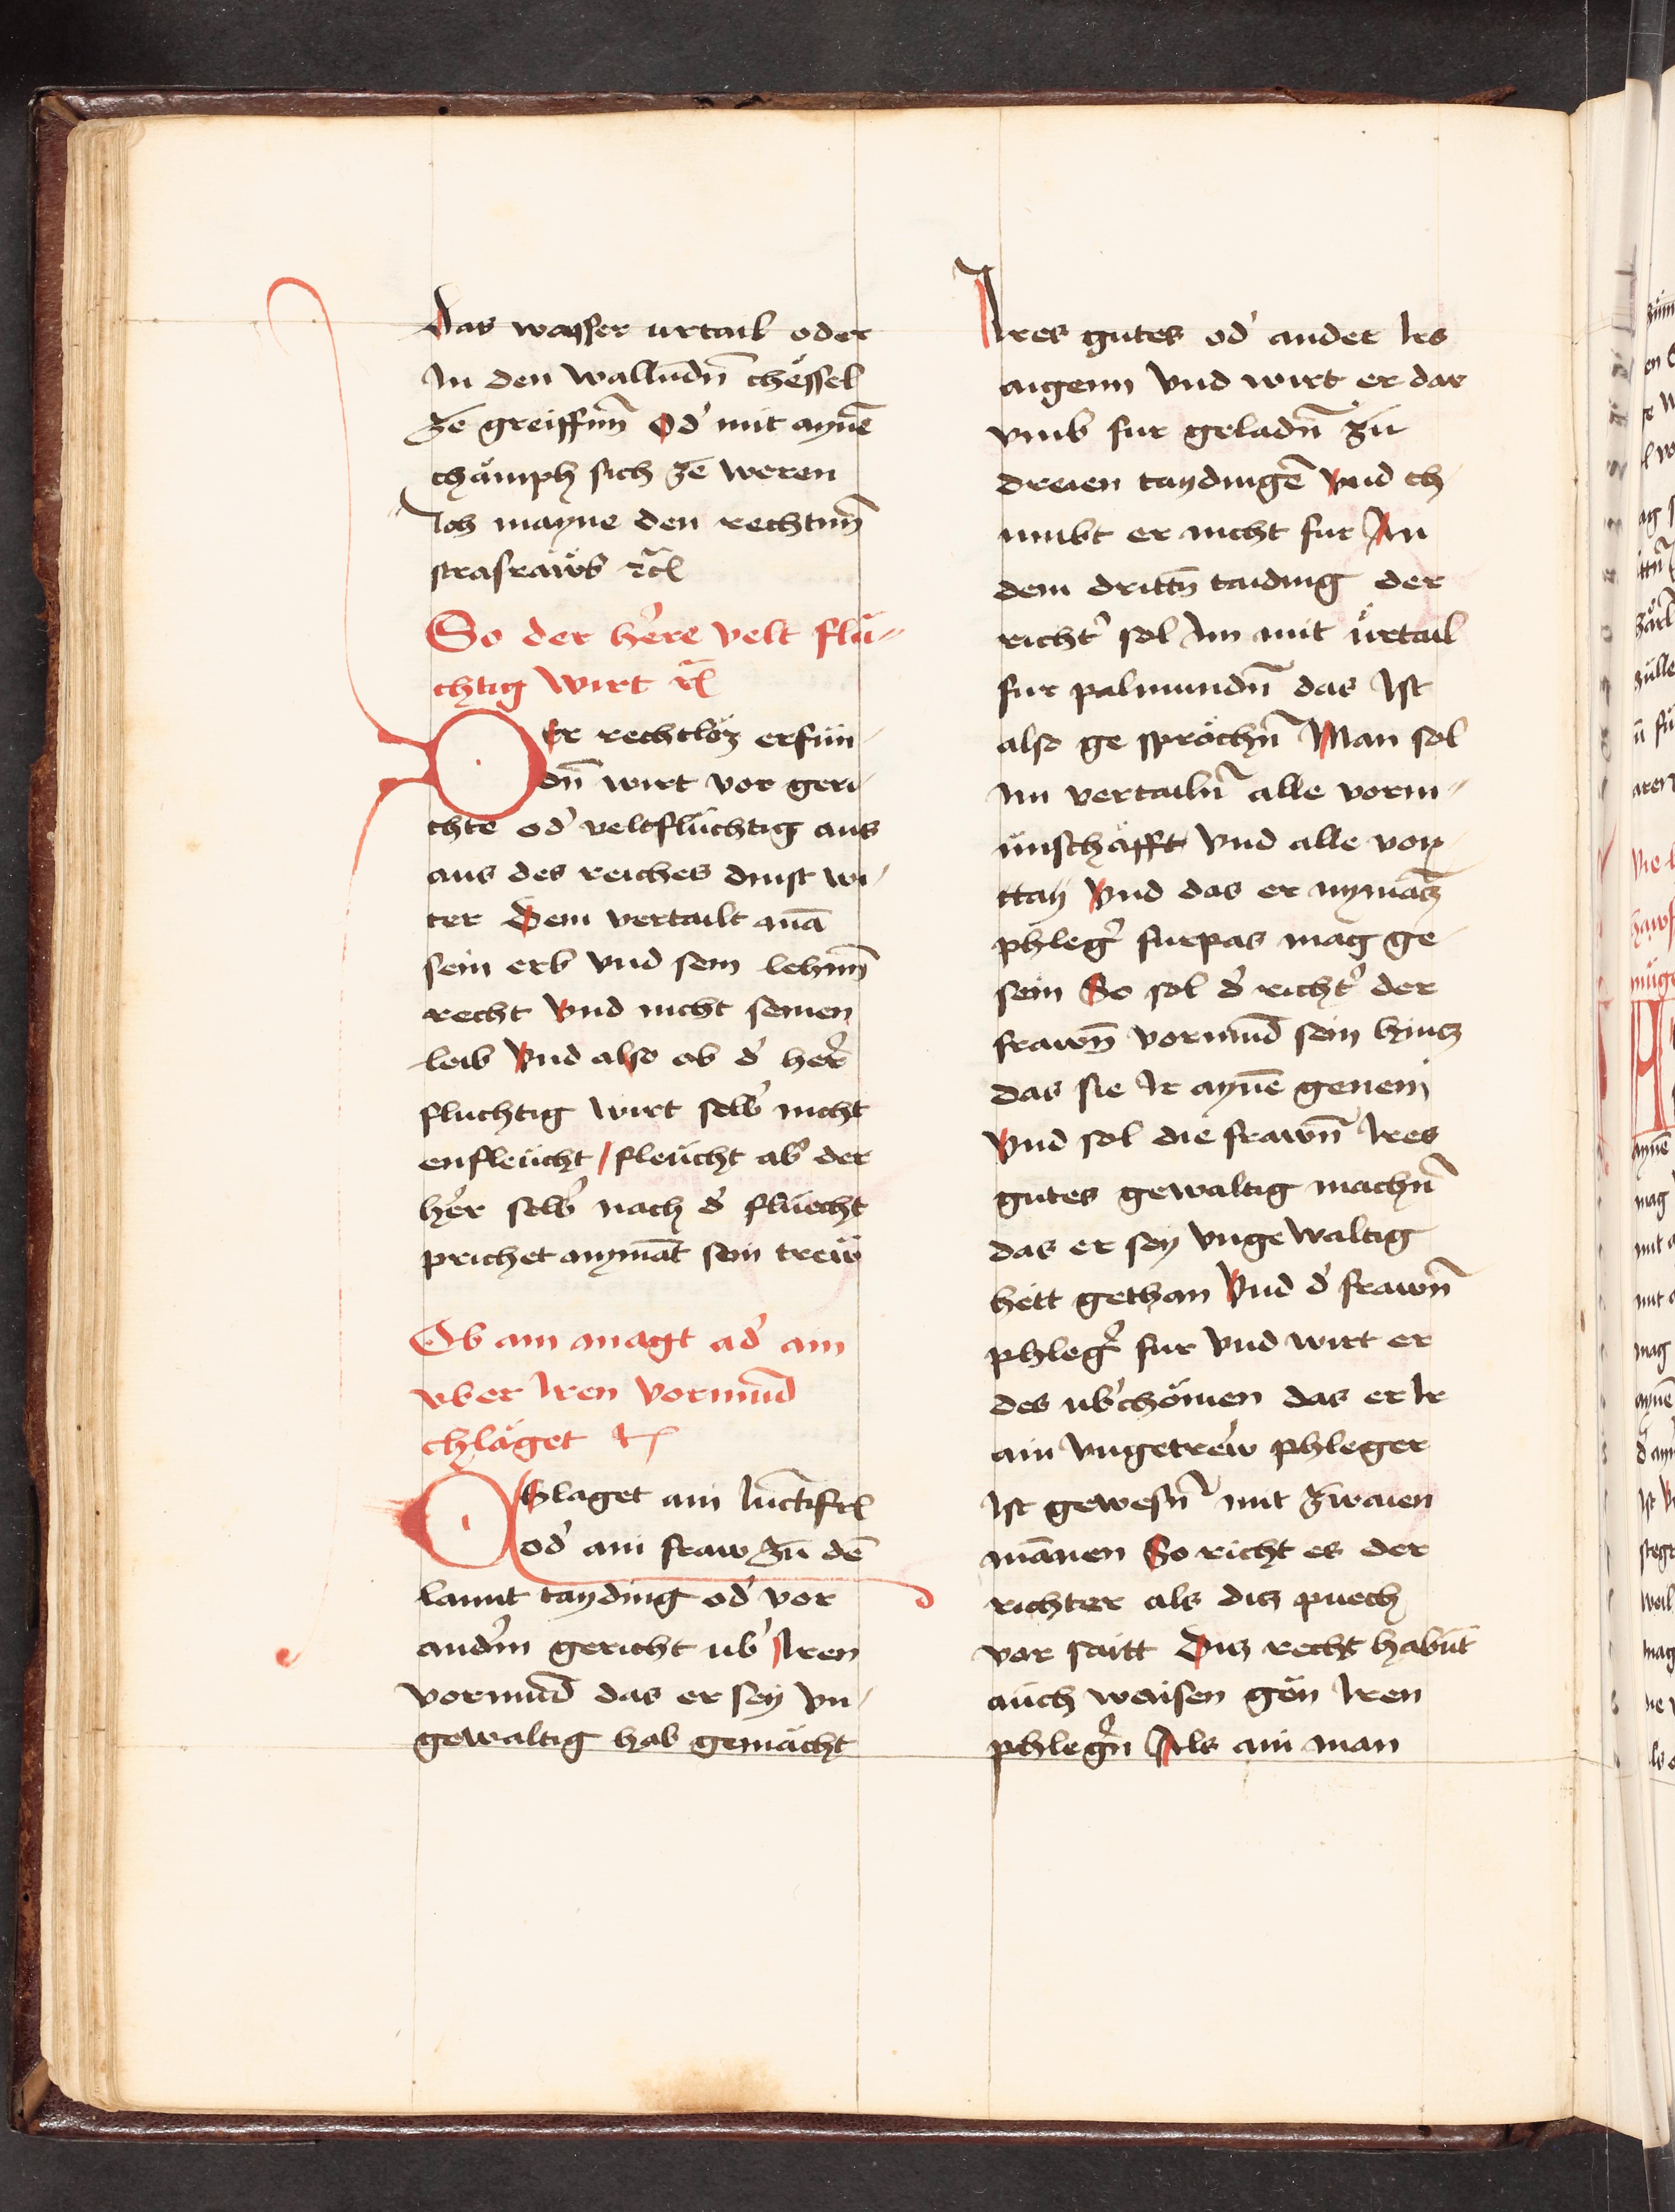 Das wasser urtail oder
In den wallūdn̄ chëssel
ze greiffnn̄ Od' mit aynē
chämph sich ze weren
Ich mayne den rechtnn̄
strasraẅb ꝛc̄
So der here velt flu-
chtig wirt ꝛc̄
Der rechtloz erfun-
dn̄ wirt vor geri-
chte od' veltfluchtig aus
aus des reiches dinst wi-
rer Dem vertailt mā
sein erb vnd sein lehnn̄
recht vnd nicht seinen
leib vnd also ob d' her'
fluchtig wirt selb' nicht
enfleucht / fleucht ab' der
her selb' nach d' fluecht
prichet nymāt sein trew
Ob ain magt ad' ain
vber Iren vormūd
chlaget ꝛc
Chlaget ain Iūckfrl
od' ain fraw zu dē
lannt tayding od' vor
anderm gericht ub' Iren
vormūd das er sey vn-
gewaltig hab gemacht
Ires gutes od' ander Irs
aigenn vnd wirt er dar
vmb fur geladn̄ zu
dreien taydingē vnd ch
umbt er nicht fur An
dem drittn̄ taiding der
richt' sol Im mit urtail
fur palmundn̄ das Ist
also ge sprochn̄ Man sol
Im vertailn̄ alle vorm-
unschafft vnd alle vog
ttay vnd das er nymācz
phleg' furpas mag ge-
sein So sol d' richt' der
frawn̄ vormūd sein hincz
das sie Ir aynē genem
vnd sol die frawn̄ Ires
gutes gewaltig machn̄
das er sey vnge waltig
hett gethan vnd d' frawn̄
phleg' fur vnd wirt er
des ub'chomen das er Ir
ain vngetrew phleger
Ist gewesn̄ mit zwaien
mānen So richt es der
richter als dicz puech
vor saitt Dicz recht habūt
auch waisen gen Iren
phleg'n Als ain man